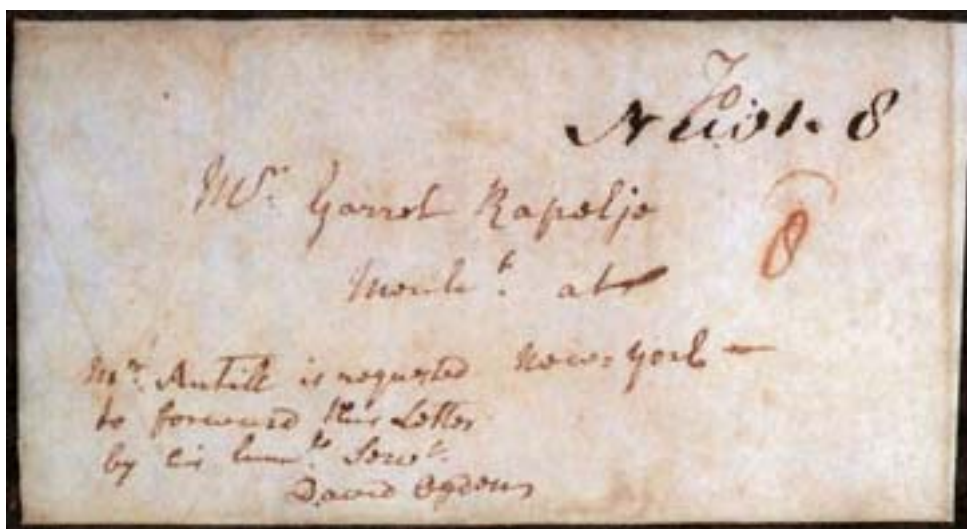 To
8
Mr. Garret Rapelje
8
Merch.t at
New-York —
Mr. Antill is requested
to forward this Letter
by his hum.le Serv.t
David Ogden